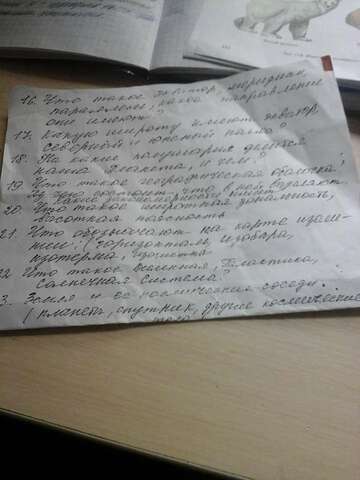 16. Что такое экватор, меридиан,
параллели, какое направление
они имеют?
17. Какую широту имеют экватор,
северный и южный полюс?
18. На какие полушария делится
наша планета и чем?
19. Что такое географическая оболочка,
из чего состоит, что в ней
Какие закономерности имеет?
20. Что такое широтная зональность,
высотная поясность
21. Что обозначают на карте изоли-
нии: (горизонтали, изобара,
изотерма,
22 Что такое Вселенная, Галактика,
Солнечная система?
3. Земля и её космические соседи.
(планеты, спутник, другие космические
тела